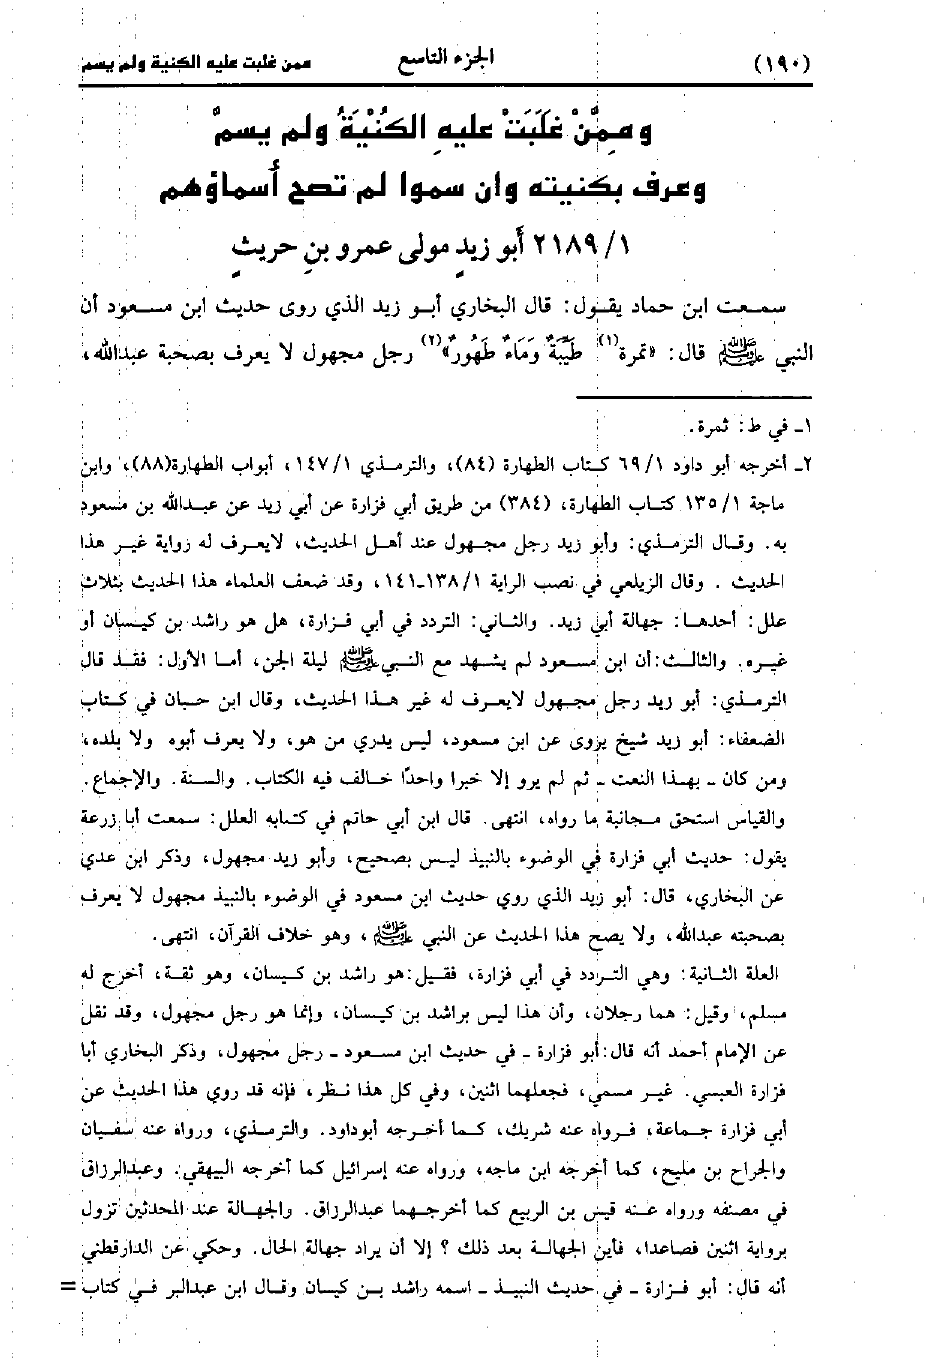 (١٩٠) الجزء التاسع ممن غلبت عليه الكنية ولم يسم
وممَّنْ غَلَبَتْ عليهِ الكُنْيَةُ ولم يسمَّ
وعرف بكنيته وان سموا لم تصح أسماؤهم
١/ ٢١٨٩ أبو زيدٍ مولى عمرو بنِ حريثٍ
سمعت ابن حماد يقول: قال البخاري أبو زيد الذي روى حديث ابن مسعود أن
النبي ﷺ قال: «تمرة(١) طَيِّبَةٌ وَمَاءٌ طَهُورٌ»(٢) رجل مجهول لا يعرف بصحبة عبدالله،
١ـ في ط: ثمرة.
٢ـ أخرجه أبو داود ١/ ٦٩ كتاب الطهارة (٨٤)، والترمذي ١/ ١٤٧، أبواب الطهارة(٨٨)، وابن
ماجة ١/ ١٣٥ كتاب الطهارة، (٣٨٤) من طريق أبي فزارة عن أبي زيد عن عبدالله بن مسعود
به. وقال الترمذي: وأبو زيد رجل مجهول عند أهل الحديث، لايعرف له رواية غير هذا
الحديث . وقال الزيلعي في نصب الراية ١/ ١٣٨ـ١٤١، وقد ضعف العلماء هذا الحديث بثلاث
علل: أحدها: جهالة أبي زيد. والثاني: التردد في أبي فزارة، هل هو راشد بن كيسان أو
غيره. والثالث:أن ابن مسعود لم يشهد مع النبي ﷺ ليلة الجن، أما الأول: فقد قال
الترمذي: أبو زيد رجل مجهول لايعرف له غير هذا الحديث، وقال ابن حبان في كتاب
الضعفاء: أبو زيد شيخ يروى عن ابن مسعود، ليس يدري من هو، ولا يعرف أبوه ولا بلده،
ومن كان ـ بهذا النعت ـ ثم لم يرو إلا خبرا واحدًا خالف فيه الكتاب. والسنة. والإجماع.
والقياس استحق مجانبة ما رواه، انتهى. قال ابن أبي حاتم في كتابه العلل: سمعت أبا زرعة
يقول: حديث أبي فزارة في الوضوء بالنبيذ ليس بصحيح، وأبو زيد مجهول، وذكر ابن عدي
عن البخاري، قال: أبو زيد الذي روي حديث ابن مسعود في الوضوء بالنبيذ مجهول لا يعرف
بصحبته عبدالله، ولا يصح هذا الحديث عن النبي ﷺ، وهو خلاف القرآن، انتهى.
العلة الثانية: وهي التردد في أبي فزارة، فقيل:هو راشد بن كيسان، وهو ثقة، أخرج له
مسلم، وقيل: هما رجلان، وأن هذا ليس براشد بن كيسان، وإنما هو رجل مجهول، وقد نقل
عن الإمام أحمد أنه قال:أبو فزارة ـ في حديث ابن مسعود ـ رجل مجهول، وذكر البخاري أبا
فزارة العبسي. غير مسمي، فجعلهما اثنين، وفي كل هذا نظر، فإنه قد روي هذا الحديث عن
أبي فزارة جماعة، فرواه عنه شريك، كما أخرجه أبوداود. والترمذي، ورواه عنه سفيان
والجراح بن مليح، كما أخرجه ابن ماجه، ورواه عنه إسرائيل كما أخرجه البيهقي. وعبدالرزاق
في مصنفه ورواه عنه قيس بن الربيع كما أخرجهما عبدالرزاق. والجهالة عند المحدثين تزول
برواية اثنين فصاعدا، فأين الجهالة بعد ذلك ؟ إلا أن يراد جهالة الحال. وحكي عن الدارقطني
أنه قال: أبو فزارة ـ في حديث النبيذ ـ اسمه راشد بن كيسان وقال ابن عبدالبر في كتاب =